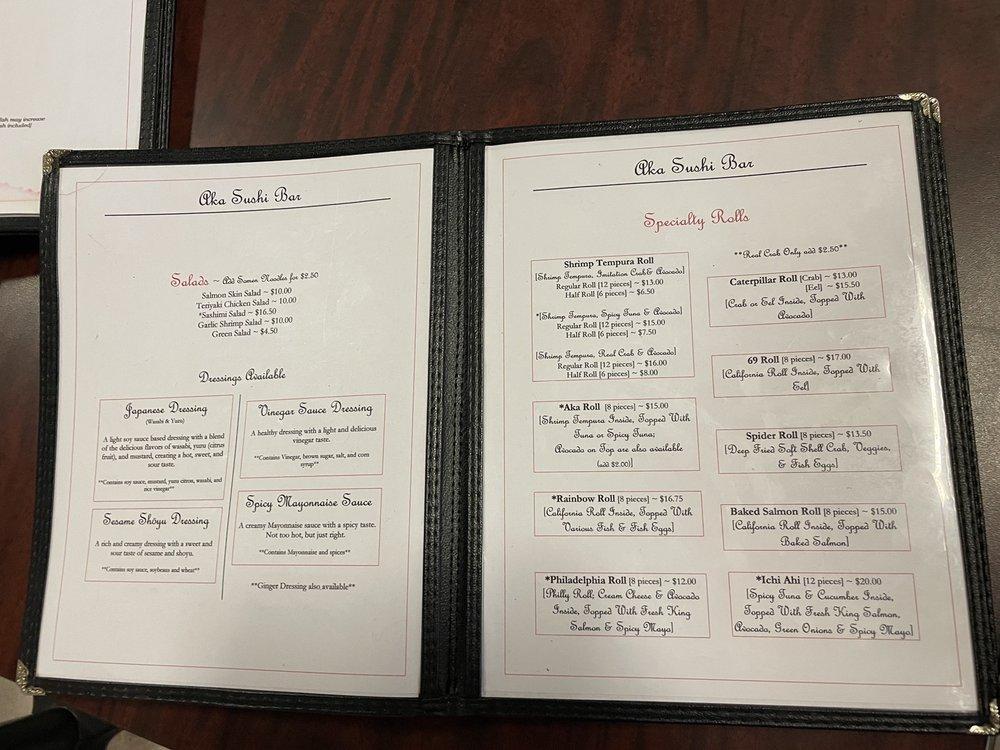 fish may increase
Aka Sushi Bar
Salads ~ Add Somen Noodles for $2.50
Salmon Skin Salad ~ $10.00
Teriyaki Chicken Salad ~ 10.00
*Sashimi Salad ~ $16.50
Garlic Shrimp Salad ~ $10.00
Green Salad ~ $4.50
Dressings Available
Japanese Dressing
(Wasabi & Yuzu)
A light soy sauce based dressing with a blend
of the delicious flavors of wasabi, yuzu (citrus
fruit), and mustard, creating a hot, sweet, and
sour taste.
**Contains soy sauce, mustard, yuzu citron, wasabi, and
rice vinegar**
Sesame Shōyu Dressing
A rich and creamy dressing with a sweet and
sour taste of sesame and shoyu.
**Contains soy sauce, soybeans and wheat**
Vinegar Sauce Dressing
A healthy dressing with a light and delicious
vinegar taste.
**Contains Vinegar, brown sugar, salt, and corn
syrup**
Spicy Mayonnaise Sauce
A creamy Mayonnaise sauce with a spicy taste.
Not too hot, but just right.
**Contains Mayonnaise and spices**
**Ginger Dressing also available**
Aka Sushi Bar
Specialty Rolls
Shrimp Tempura Roll
[Shrimp Tempura, Imitation Crab & Avocado]
Regular Roll [12 pieces] ~ $13.00
Half Roll [6 pieces] ~ $6.50
*[Shrimp Tempura, Spicy Tuna & Avocado]
Regular Roll [12 pieces] ~ $15.00
Half Roll [6 pieces] ~ $7.50
[Shrimp Tempura, Real Crab & Avocado]
Regular Roll [12 pieces] ~ $16.00
Half Roll [6 pieces] ~ $8.00
*Aka Roll [8 pieces] ~ $15.00
[Shrimp Tempura Inside, Topped With
Tuna or Spicy Tuna;
Avocado on Top are also available
(add $2.00)]
*Rainbow Roll [8 pieces] ~ $16.75
[California Roll Inside, Topped With
Various Fish & Fish Eggs]
*Philadelphia Roll [8 pieces] ~ $12.00
[Philly Roll; Cream Cheese & Avocado
Inside, Topped With Fresh King
Salmon & Spicy Mayo]
**Real Crab Only add $2.50**
Caterpillar Roll [Crab] ~ $13.00
[Eel] ~ $15.50
[Crab or Eel Inside, Topped With
Avocado]
69 Roll [8 pieces] ~ $17.00
[California Roll Inside, Topped With
Eel]
Spider Roll [8 pieces] ~ $13.50
[Deep Fried Soft Shell Crab, Veggies,
& Fish Eggs]
Baked Salmon Roll [8 pieces] ~ $15.00
[California Roll Inside, Topped With
Baked Salmon]
*Ichi Ahi [12 pieces] ~ $20.00
[Spicy Tuna & Cucumber Inside,
Topped With Fresh King Salmon,
Avocado, Green Onions & Spicy Mayo]